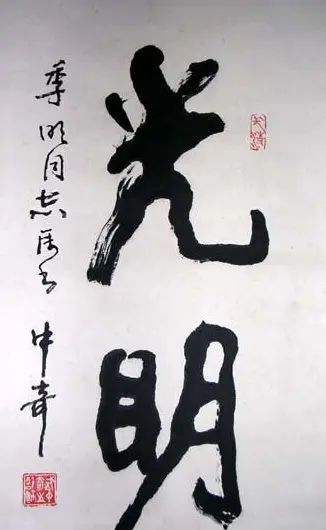 光明
季明同志属书 中奇